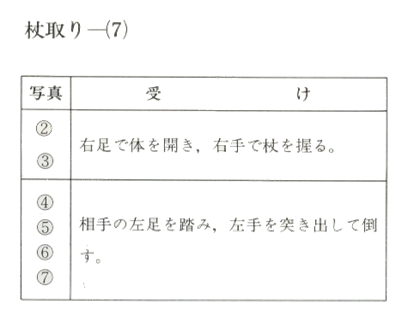 杖取り—(7)
写真 受け
②
③
右足で体を開き，右手で杖を握る。
④
⑤
⑥
⑦
相手の左足を踏み，左手を突き出して倒
す。